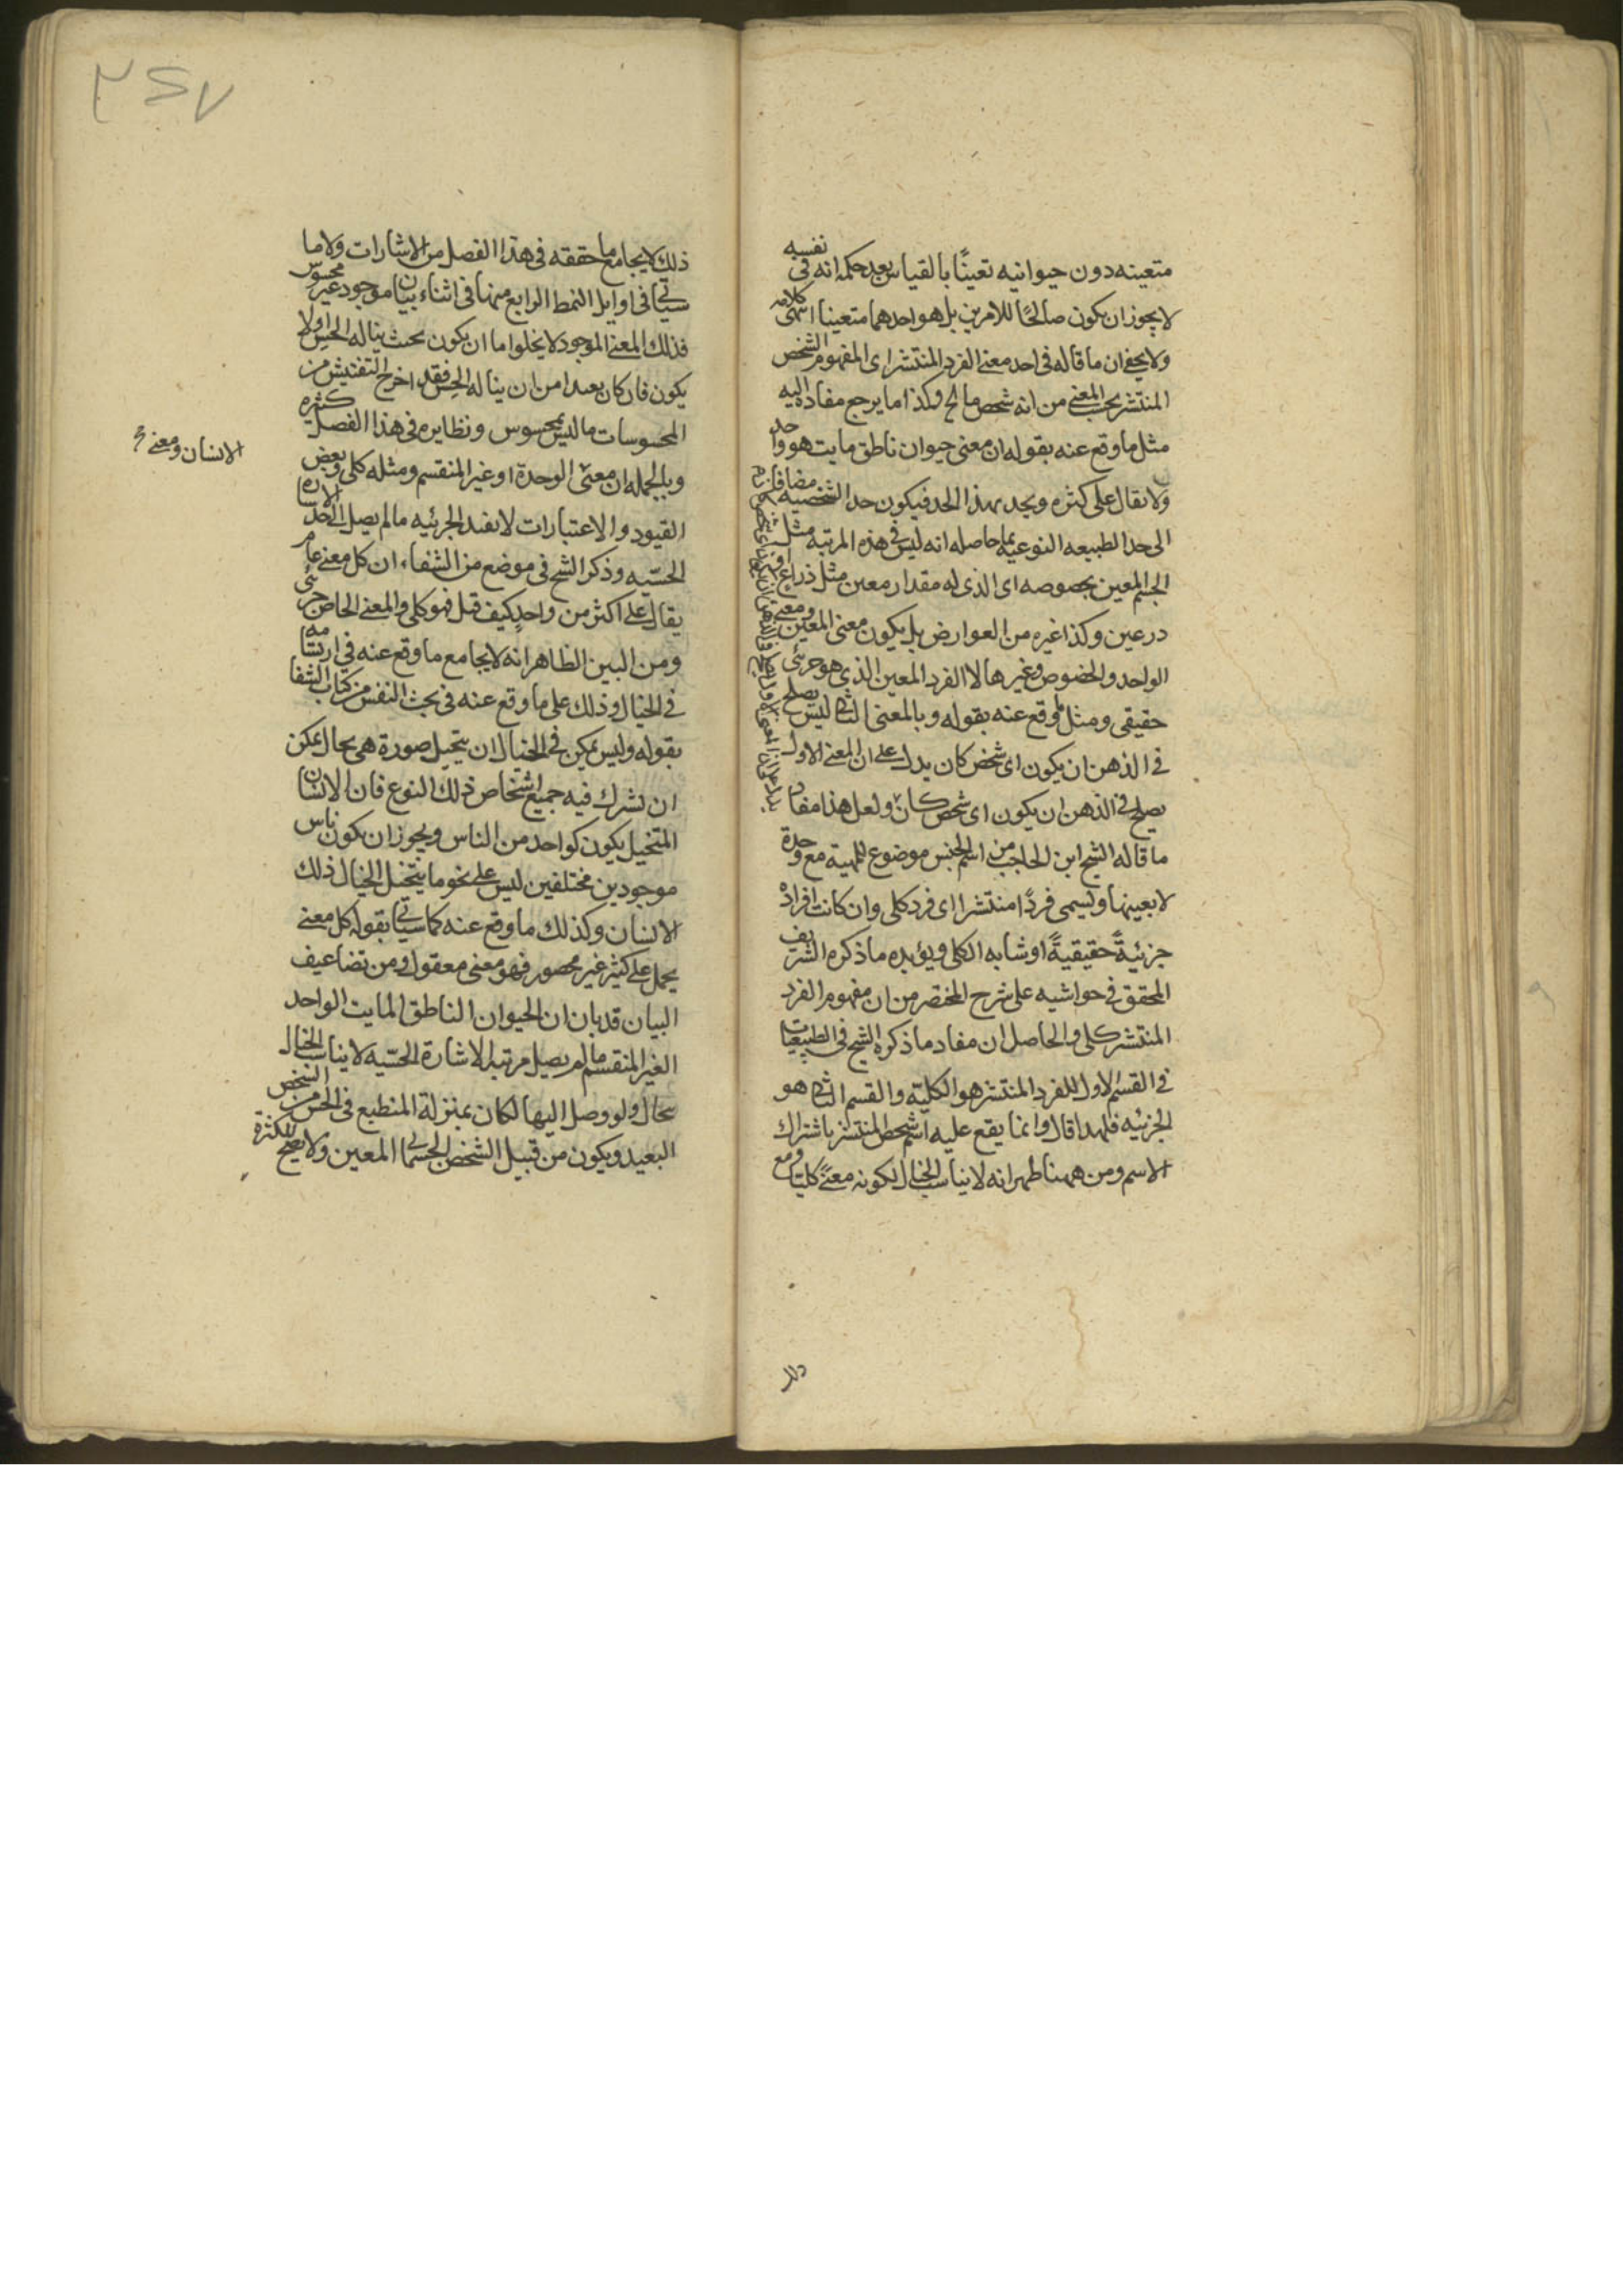 متعينه دون حيوانيه تعينًا بالقياس بعد حكمه انه فى نفسه
لا يجوز ان يكون صالحًا للامرين بل هو احدهما متعينا انتهى كلامه
ولا يخفى ان ما قاله فى احد معنى الفرد المنتشر اى المفهوم الشخص
المنتشر بحسب المعنى من انه شخص ما لح وكذا ما يرجع مفاده اليه
مثل ما وقع عنه بقوله ان معنى حيوان ناطق مايت هو واحد
ولا يقال على كثره ويحد بهذا الحد فيكون حد الشخصيه مضافا
الى حد الطبيعه النوعيه بما حاصله انه ليس فى هذه المرتبه مثل
الجسم المعين بخصوصه اى الذى له مقدار معين مثل ذراع او
درعين وكذا غيره من العوارض بل يكون معنى المعين ومعنى
الواحد والخصوص وغيرها لا الفرد المعين الذى هو جزئى
حقيقى ومثل ما وقع عنه بقوله وبالمعنى الثانى ليس يصلح
فى الذهن ان يكون اى شخص كان يدل على ان المعنى الاول
يصلح فى الذهن ان يكون اى شخص كان ولعل هذا مفاد
ما قاله الشيخ ابن الحاجب من اسم الجنس موضوع للمهية مع وحدة
لا بعينها ويسمى فردًا منتشرا اى فرد كلى وان كانت افراده
جزئيةً حقيقيةً او شابه الكلى ويؤيده ما ذكره الشريف
المحقق فى حواشيه على شرح المختصر من ان مفهوم الفرد
المنتشر كلى والحاصل ان مفاد ما ذكره الشيخ فى الطبيعيات
فى القسم الاول للفرد المنتشر هو الكليّه والقسم الثانى هو
الجزئيه فلهذا قال وانما يقع عليه اسم الشخص المنتشر باشتراك
الاسم ومن ههنا ظهر انه لا يناسب الخيال لكونه معنىً كليّا ومع
ذلك
٣٤٧
ذلك لا يجامع ما حققه فى هذا الفصل من الاشارات ولا ما
سيأتى فى اوايل النمط الرابع منها فى اثناء بيان موجود غير محسوس
فذلك المعنى الموجود لا يخلوا ما ان يكون بحيث يناله الحس اولا
يكون فان كان بعيدا من ان يناله الحس فقد اخرج التفتيش من
المحسوسات ما ليس بمحسوس ونظايره فى هذا الفصل كثيره
وبالجمله ان معنى الوحدة او غير المنقسم ومثله كلى وبعض
القيود والاعتبارات لا يفيد الجزئيه ما لم يصل الى حد الاشارة
الحسّيه وذكر الشيخ فى موضع من الشفاء ان كل معنى عام
يقال على اكثر من واحدٍ كيف قيل فهو كلى والمعنى الخاص جزئى
ومن البين الظاهر انه لا يجامع ما وقع عنه فى ارتسامه
فى الخيال وذلك على ما وقع عنه فى بحث النفس من كتاب الشفا
بقوله وليس يمكن فى الخيال ان يتخيل صورة هى بحال يمكن
ان يشرك فيه جميع اشخاص ذلك النوع فان الانسان
المتخيل يكون كواحد من الناس ويجوز ان يكون ناس
موجودين مختلفين ليس على نحو ما يتخيل الخيال ذلك
الانسان وكذلك ما وقع عنه كما سيأتى بقوله كل معنى
يحمل على كثير غير محصور فهو معنى معقول ومن تضاعيف
البيان قد بان ان الحيوان الناطق المايت الواحد
الغير المنقسم ما لم يصل مرتبه الاشارة الحسّيه لا يناسب الخيال
بحال ولو وصل اليها لكان بمنزلة المنطبع فى الحس من الشخص
البعيد ويكون من قبيل الشخص الجسمانى المعين ولا يصح للكثرة
الانسان ومعنى